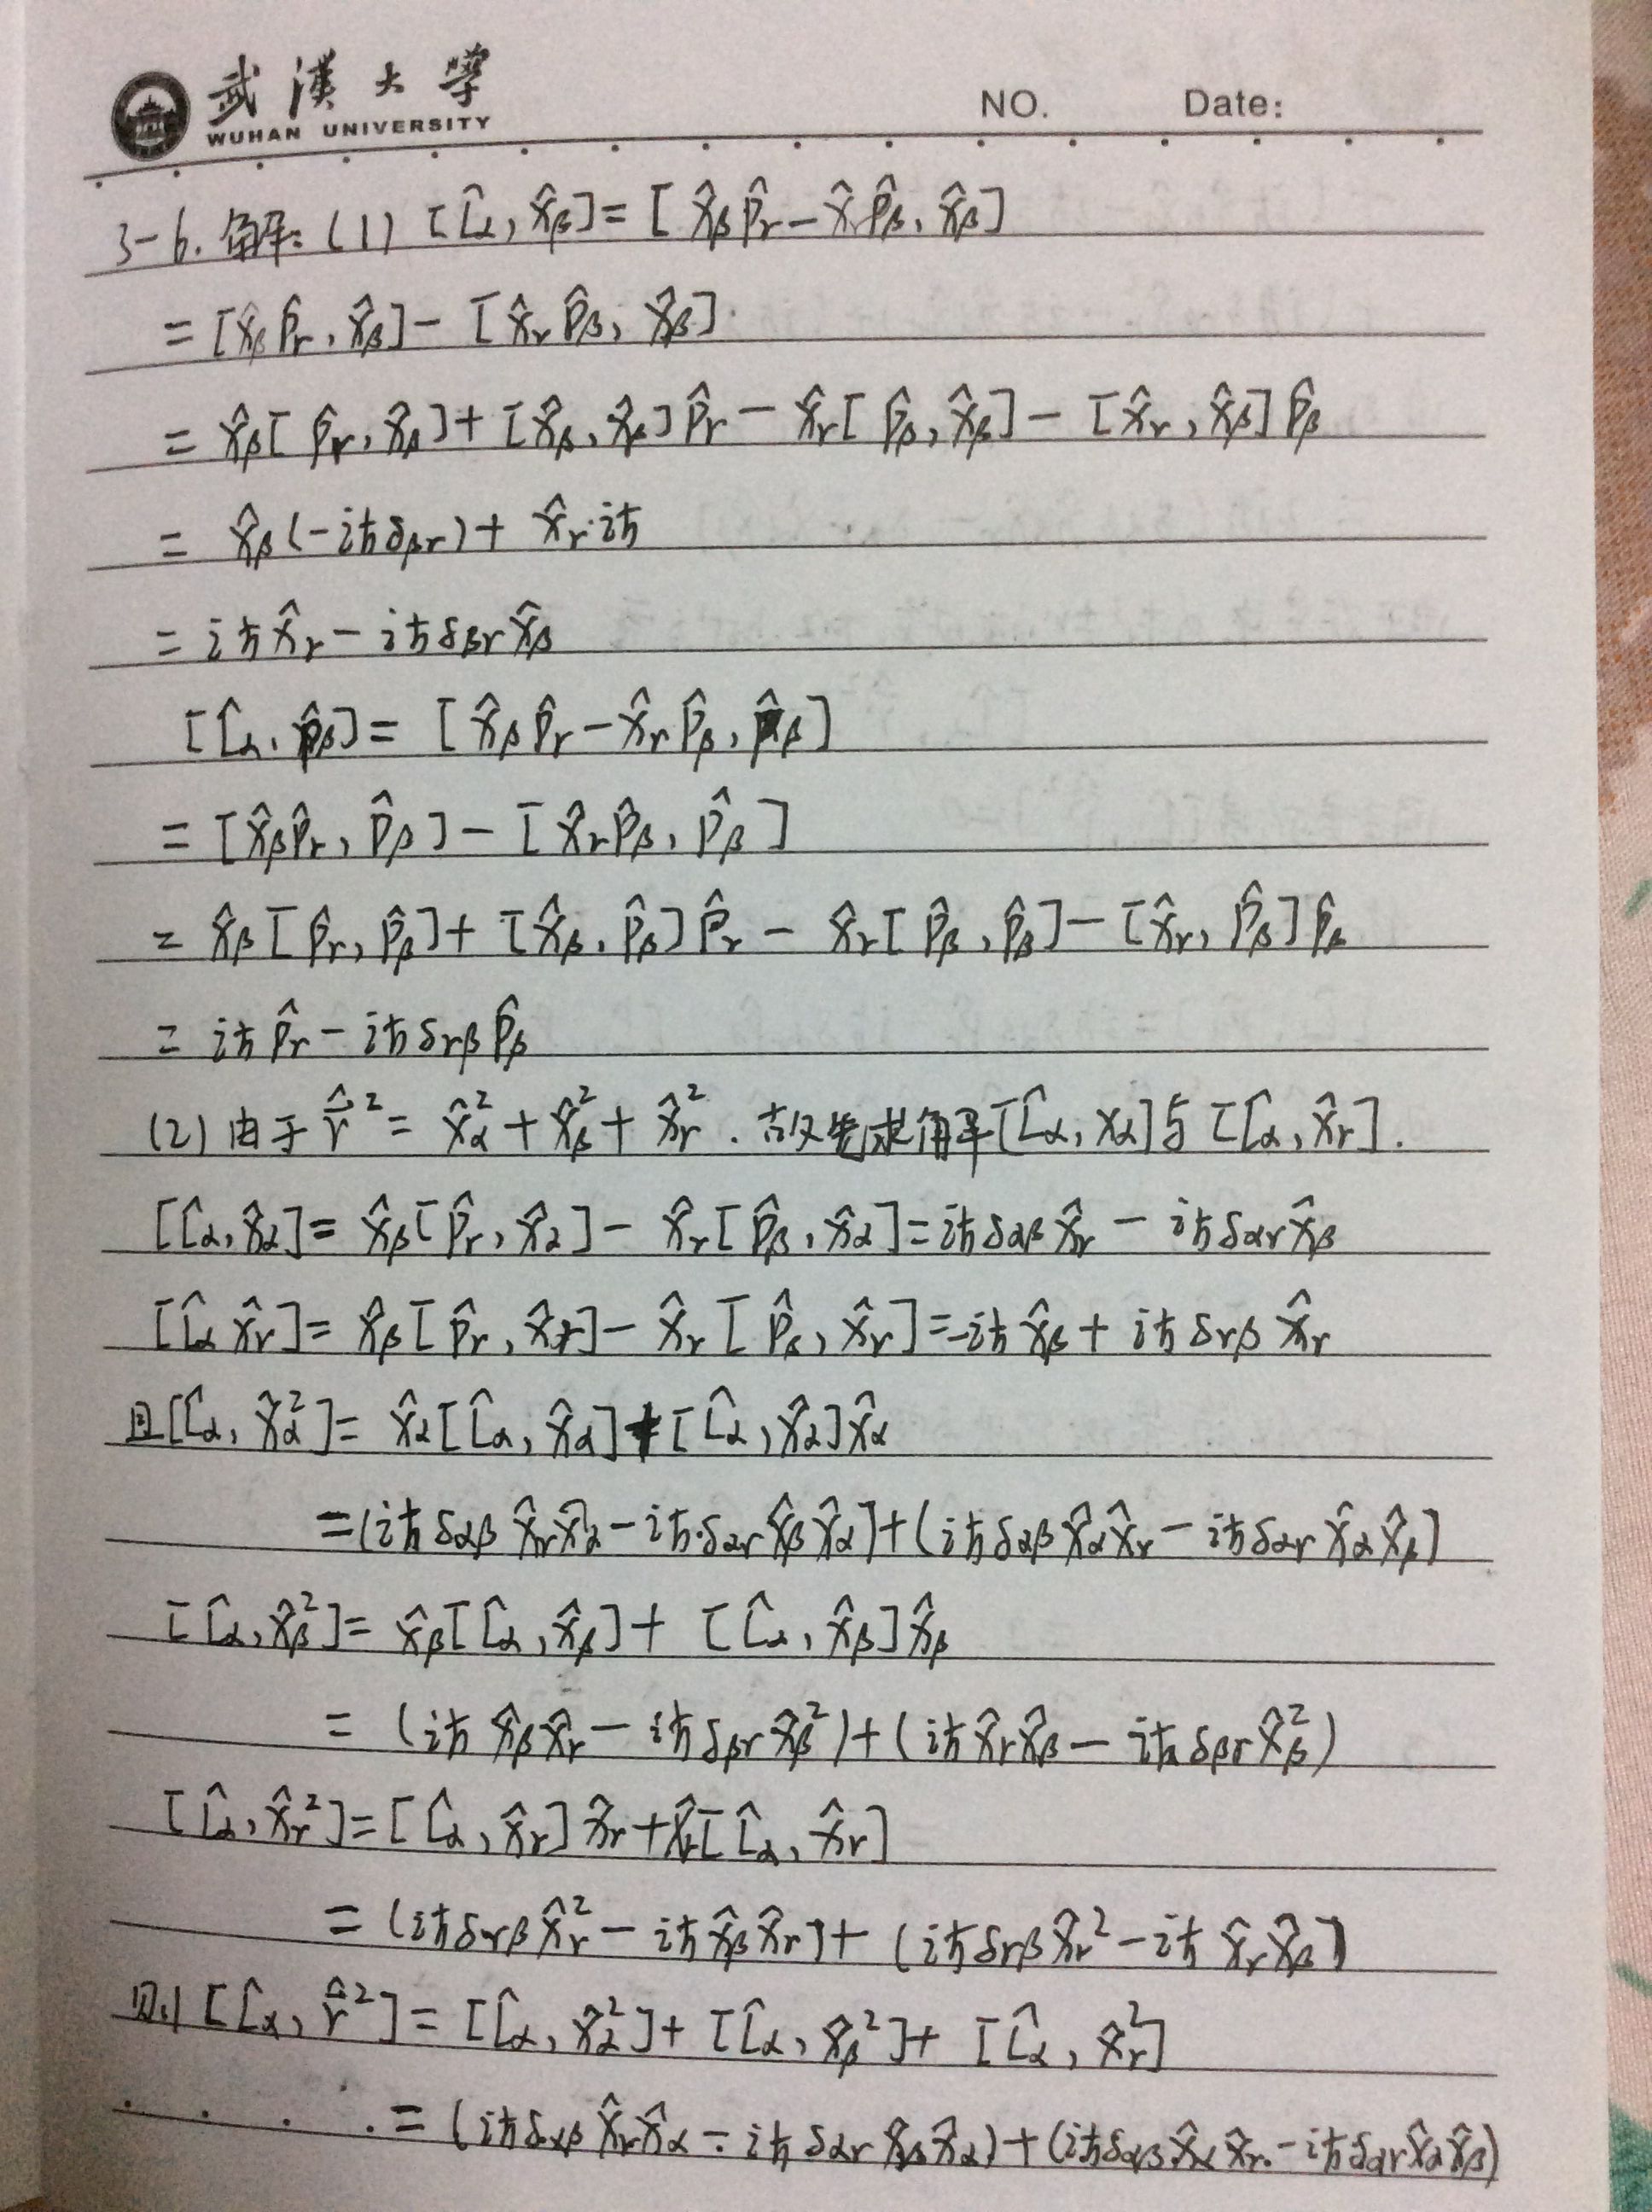 武漢大學
WUHAN UNIVERSITY
NO. Date:
3-6. 解: (1) [L̂α, x̂β] = [x̂β p̂r − x̂ p̂β, x̂β]
= [x̂β p̂r, x̂β] − [x̂r p̂β, x̂β]
= x̂β[p̂r, x̂β] + [x̂β, x̂β] p̂r − x̂r[p̂β, x̂β] − [x̂r, x̂β] p̂β
= x̂β(−iħδβr) + x̂r·iħ
= iħx̂r − iħδβr x̂β
[L̂α, p̂β] = [x̂β p̂r − x̂r p̂β, p̂β]
= [x̂β p̂r, p̂β] − [x̂r p̂β, p̂β]
= x̂β[p̂r, p̂β] + [x̂β, p̂β] p̂r − x̂r[p̂β, p̂β] − [x̂r, p̂β] p̂β
= iħ p̂r − iħδrβ p̂β
(2) 由于 r̂² = x̂α² + x̂β² + x̂r². 故先求解[L̂α, xα]与[L̂α, x̂r].
[L̂α, x̂α] = x̂β[p̂r, x̂α] − x̂r[p̂β, x̂α] = iħδαβ x̂r − iħδαr x̂β
[L̂α x̂r] = x̂β[p̂r, x̂r] − x̂r[p̂β, x̂r] = −iħ x̂β + iħδrβ x̂r
且[L̂α, x̂α²] = x̂α[L̂α, x̂α] + [L̂α, x̂α]x̂α
= (iħδαβ x̂r x̂α − iħ·δαr x̂β x̂α) + (iħδαβ x̂α x̂r − iħδαr x̂α x̂β)
[L̂α, x̂β²] = x̂β[L̂α, x̂β] + [L̂α, x̂β]x̂β
= (iħ x̂β x̂r − iħδβr x̂β²) + (iħ x̂r x̂β − iħδβr x̂β²)
[L̂α, x̂r²] = [L̂α, x̂r] x̂r + x̂r[L̂α, x̂r]
= (iħδrβ x̂r² − iħ x̂β x̂r) + (iħδrβ x̂r² − iħ x̂r x̂β)
则 [L̂α, r̂²] = [L̂α, x̂α²] + [L̂α, x̂β²] + [L̂α, x̂r²]
= (iħδαβ x̂r x̂α − iħδαr x̂β x̂α) + (iħδαβ x̂α x̂r − iħδαr x̂α x̂β)